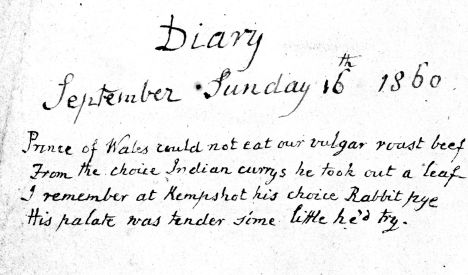 Diary
September Sunday 16th 1860
Prince of Wales could not eat our vulgar roast beef
From the choice Indian currys he took out a leaf
I remember at Kempshot his choice Rabbit pye
His palate was tender some little he'd try.